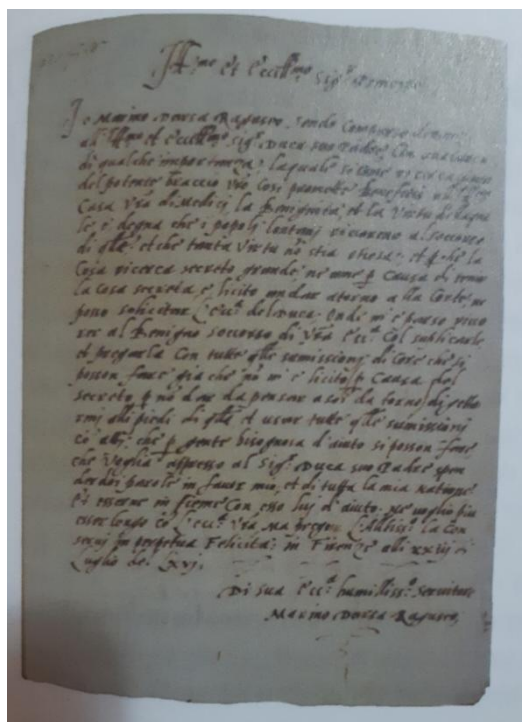 Ill.mo et Ecc.mo Sig.r
Io Marino Darsa Raguseo, sendo comparso
all' Ill.mo et Ecc.mo Sig.r Duca suo Padre, con
di qualche importanza; la quale si come
del potente braccio Vro cosi promette beneficii
Casa Vra di Medici, la Benignita, et la Virtu di la qua
le, è degna che i popoli lontanj ricorrano al soccorso
di q.lla et che tanta Virtu nō stia otiosa; et p che la
Cosa ricerca secreto grande, ne mme p causa di tener
la cosa secreta, è licito andar atorno alla Corte ne
posso solicitar l'ecc.a del Duca. Onde mi è parso ricor
rer al Benigno soccorso di Vra ecc.a col suplicarle
et pregarla con tutte q.lle sumissioni di core che si
posson fare già che nō m'è licito p causa del
secreto p nō dar da pensar a
rmi alli piedi di q.lla et usar tutte q.lle sumissioni
cō che p gente bisognosa d'aiuto si posson fare
che voglia appresso al Sig.r Duca suo Padre spen
der doi parole in favor mio, et di tutta la mia natione
et esserne in sieme con esso luj d'aiuto. Ne voglio piu
esser longo cō l'ecc.a Vra Ma pregar l'Altiss.o la con
servj in perpetua Felicita; in Firenze alli di
Luglio del lxvj.
Di sua Ecc.a humiliss.o Servitore
Marino Darsa Raguseo,